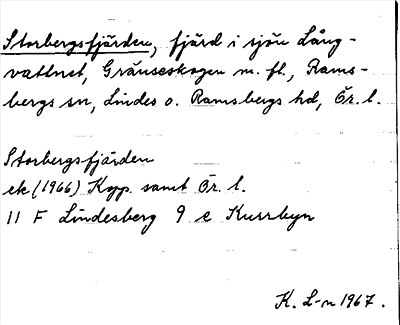 Storbergsfjärden, fjärd i sjön Lång-
vattnet, Gränseskogen m. fl., Rams-
bergs sn, Lindes o. Ramsbergs hd, Ör. l.
Storbergsfjärden
ek (1966) Kpp. samt Ör. l.
11 F Lindesberg 9 e Kurrbyn
K. L-n 1967.